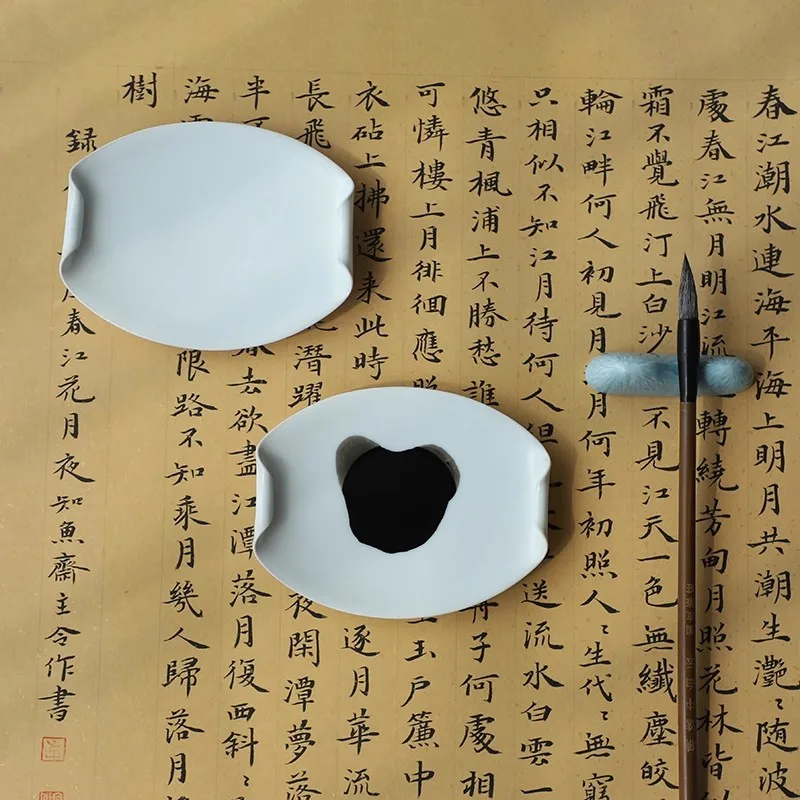 春江潮水連海平海上明月共潮生灧〻随波
處春江無月明江流轉繞芳甸月照花林皆
霜不覺飛汀上白沙不見江天一色無纖塵皎
輪江畔何人初見月月何年初照人〻生代〻無窮
只相似不知江月待何人但送流水白雲一
悠青楓浦上不勝愁誰子何處相
可憐樓上月徘徊應照玉戶簾中
衣砧上拂還来此時逐月華流
長飛潛躍夜閑潭夢落
半去欲盡江潭落月復西斜〻
海限路不知乘月幾人歸落月
樹
録春江花月夜知魚齋主令作書